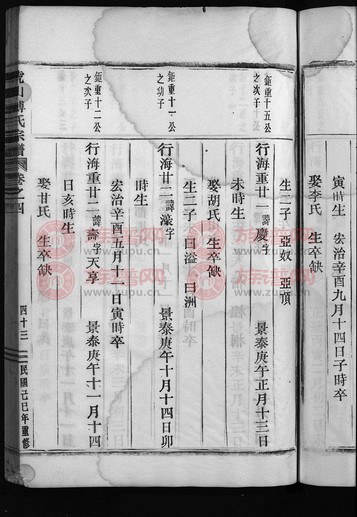 寅時生 宏治辛酉九月十四日子時卒
娶李氏 生卒缺
生二子 亞奴 亞頂
鉅重十五公之次子
行海重廿一諱慶字 景泰庚午正月十三日
未時生
娶胡氏 生卒缺
生二子 曰溢 曰洲
鉅重十一公之幼子
行海廿二諱濠字 景泰庚午十月十四日卯
時生
宏治辛酉五月十一日寅時卒
鉅重十二公之次子
行海重廿二諱壽字天享 景泰庚午十一月十四
日亥時生
娶甘氏 生卒缺
虎山傅氏宗譜 卷之四 四十三 民國元己年重修
族譜网
zupu.cn